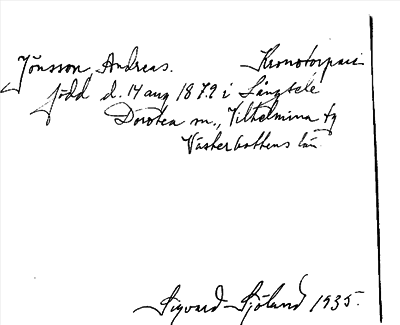 Jönsson, Andreas. Kronotorpare
född d. 14 aug 1879 i Långsele
Dorotea m., Vilhelmina tg
Västerbottens län
Sigvard Sjölund 1935.